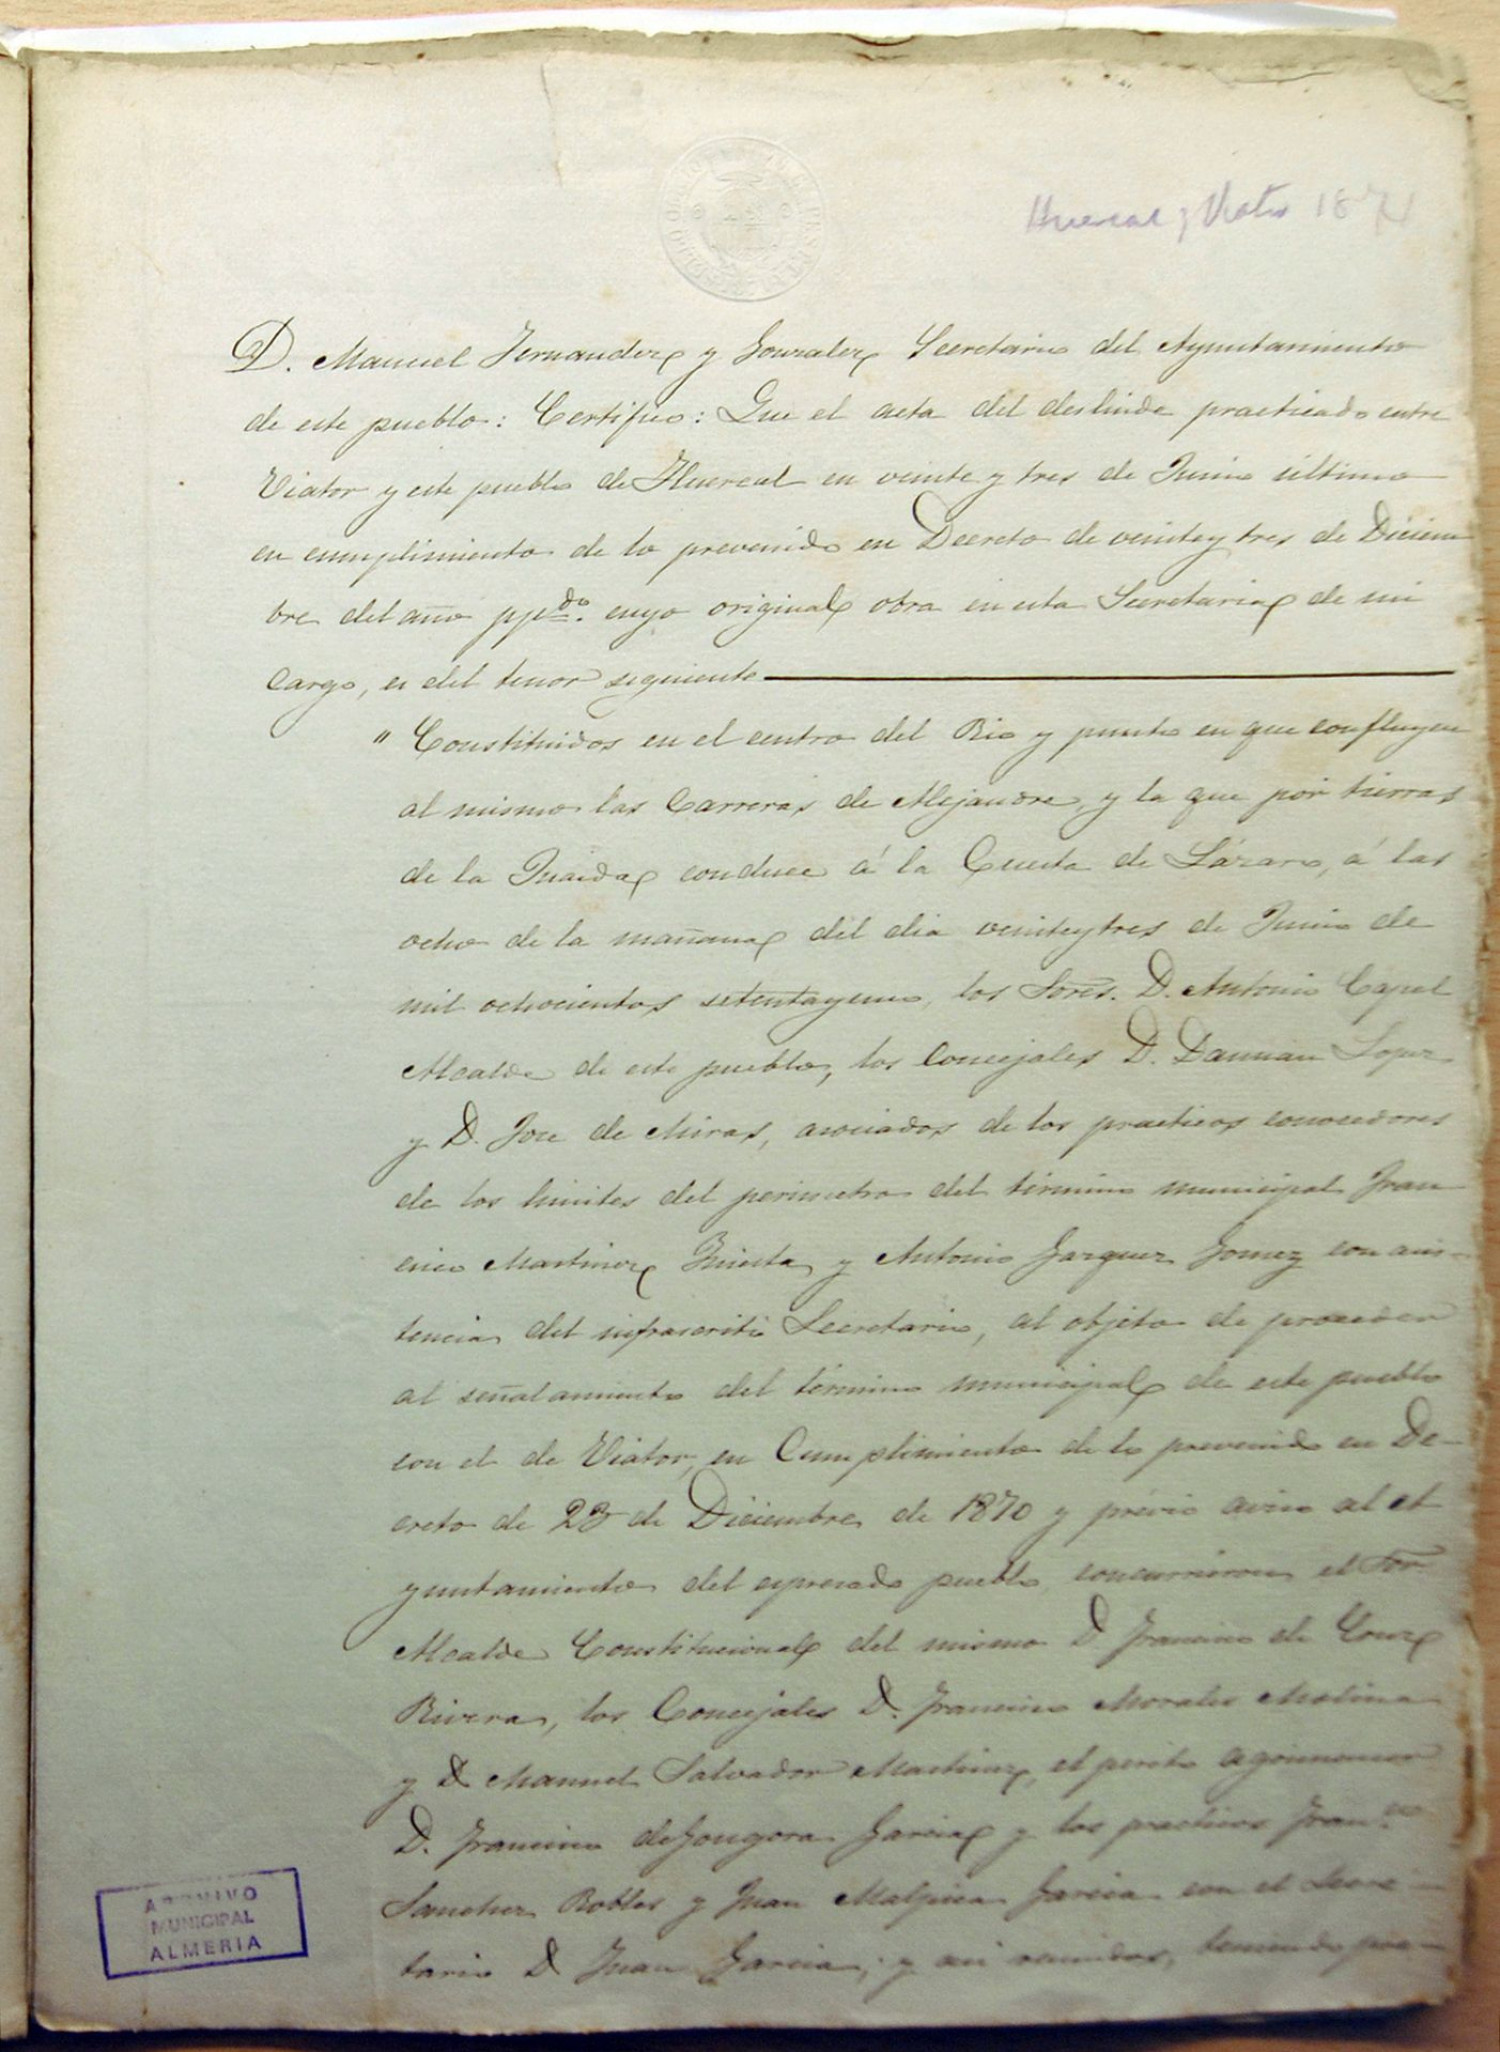 Huercal y Viator 1871
D. Manuel Fernandez y Gonzalez Secretario del Ayuntamiento
de este pueblo: Certifico: Que el acta del deslinde practicado entre
Viator y este pueblo de Huercal en veinte y tres de Junio último
en cumplimiento de lo prevenido en Decreto de veinteytres de Diciem
bre del año ppdo. cuyo original obra en esta Secretaria de mi
cargo, es del tenor siguiente
" Constituidos en el centro del Rio y punto en que confluyen
al mismo las Carreras de Alejandre, y la que por tierras
de la Juaida conduce á la Cuesta de Lázaro, á las
ocho de la mañana del dia veinteytres de Junio de
mil ochocientos setentayuno, los Sores. D. Antonio Capel
Alcalde de este pueblo, los Concejales D. Damian Lopez
y D. Jose de Miras, asociados de los practicos conocedores
de los limites del perimetro del término municipal Fran
cisco Martinez Iniesta y Antonio Gazquez Gomez con asis-
tencia del infrascrito Secretario, al objeto de proceder
al señalamiento del término municipal de este pueblo
con el de Viator, en Cumplimiento de lo prevenido en De-
creto de 23 de Diciembre de 1870 y prévio aviso al A
yuntamiento del espresado pueblo, concurrieron el Sor.
Alcalde Constitucional del mismo D Francisco de
Rivera, los Concejales D. Francisco Morales Molina
y D Manuel Salvador Martinez, el perito agrimensor
D. Francisco de Gongora Garcia y los practicos Franco.
Sanchez Robles y Juan Malpica Garcia con el Secre-
tario D Juan Garcia; y asi reunidos, teniendo pre-
ARCHIVO
MUNICIPAL
ALMERIA